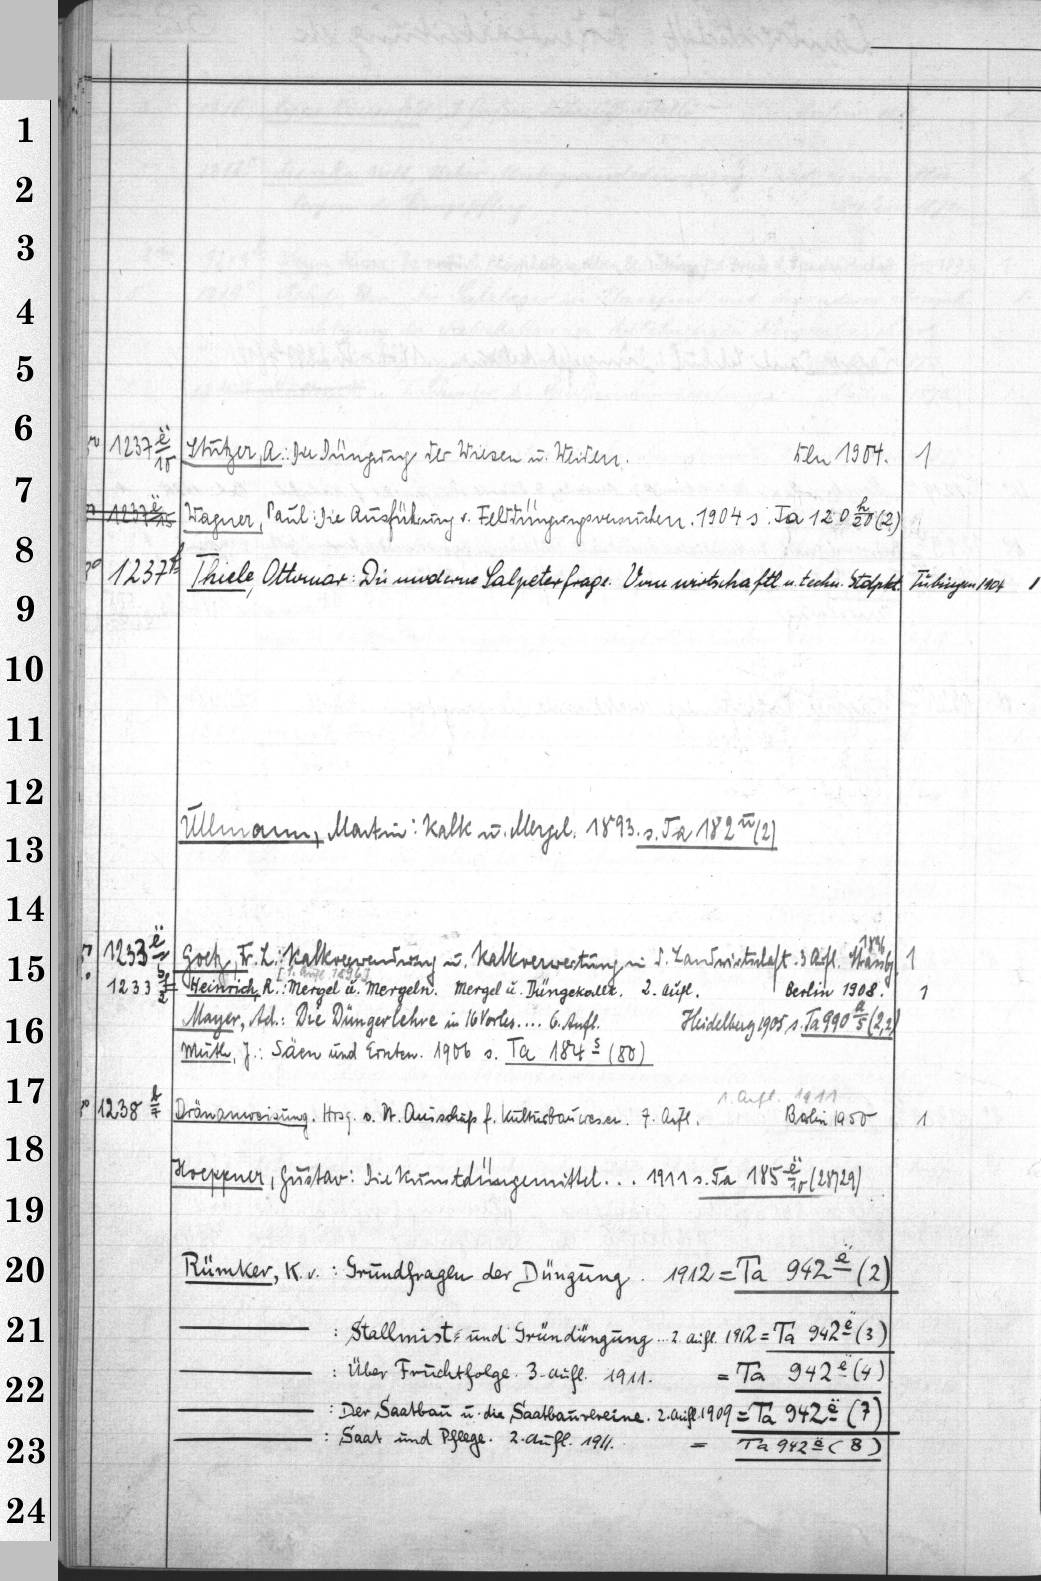 1
2
3
4
5
6
1237 ë/10 Stutzer, A.: Die Düngung der Wiesen u. Weiden. Bln 1904. 1
7
1237 ë/15 Wagner, Paul: Die Ausführung v. Felddüngungsversuchen. 1904 s. Ta 120 h/20 (2)
8
1237 f Thiele, Ottomar: Die moderne Salpeterfrage. Vom wirtschaftl u. techn. Stdpkt. Tübingen 1904 1
9
10
11
12
Ullmann, Martin: Kalk u. Mergel. 1893. s. Ta 182 u (2)
13
14
1233 ë/5 Goetz, Fr. L.: Kalkverwendung u. Kalkverwertung in d. Landwirtschaft. 3 Aufl. Strassbg 1896 1
15
[1. Aufl. 1896]
1233 Heinrich, R.: Mergel u. Mergeln. Mergel u. Düngekalk. 2. Aufl. Berlin 1908. 1
16
Mayer, Ad.: Die Düngerlehre in 16 Vorles.... 6. Aufl. Heidelberg 1905 s. Ta 990 a/5 (2,2)
Muth, J.: Säen und Ernten. 1906 s. Ta 184 s (80)
17
1. Aufl. 1911
1238 Dränanweisung. Hrsg. v. Dt. Ausschuß f. Kulturbauwesen. 7. Aufl. Berlin 1950 1
18
Hoeppner, Gustav: Die Kunstdüngemittel... 1911 s. Ta 185 ë/10 (28/29)
19
20
Rümker, K. v.: Grundfragen der Düngung. 1912 = Ta 942 ë (2)
21
: Stallmist- und Gründüngung... 2. Aufl. 1912 = Ta 942 ë (3)
22
: Über Fruchtfolge. 3. Aufl. 1911. = Ta 942 ë (4)
: Der Saatbau u. die Saatbauvereine. 2. Aufl. 1909 = Ta 942 ë (7)
23
: Saat und Pflege. 2. Aufl. 1911. = Ta 942 ë (8)
24